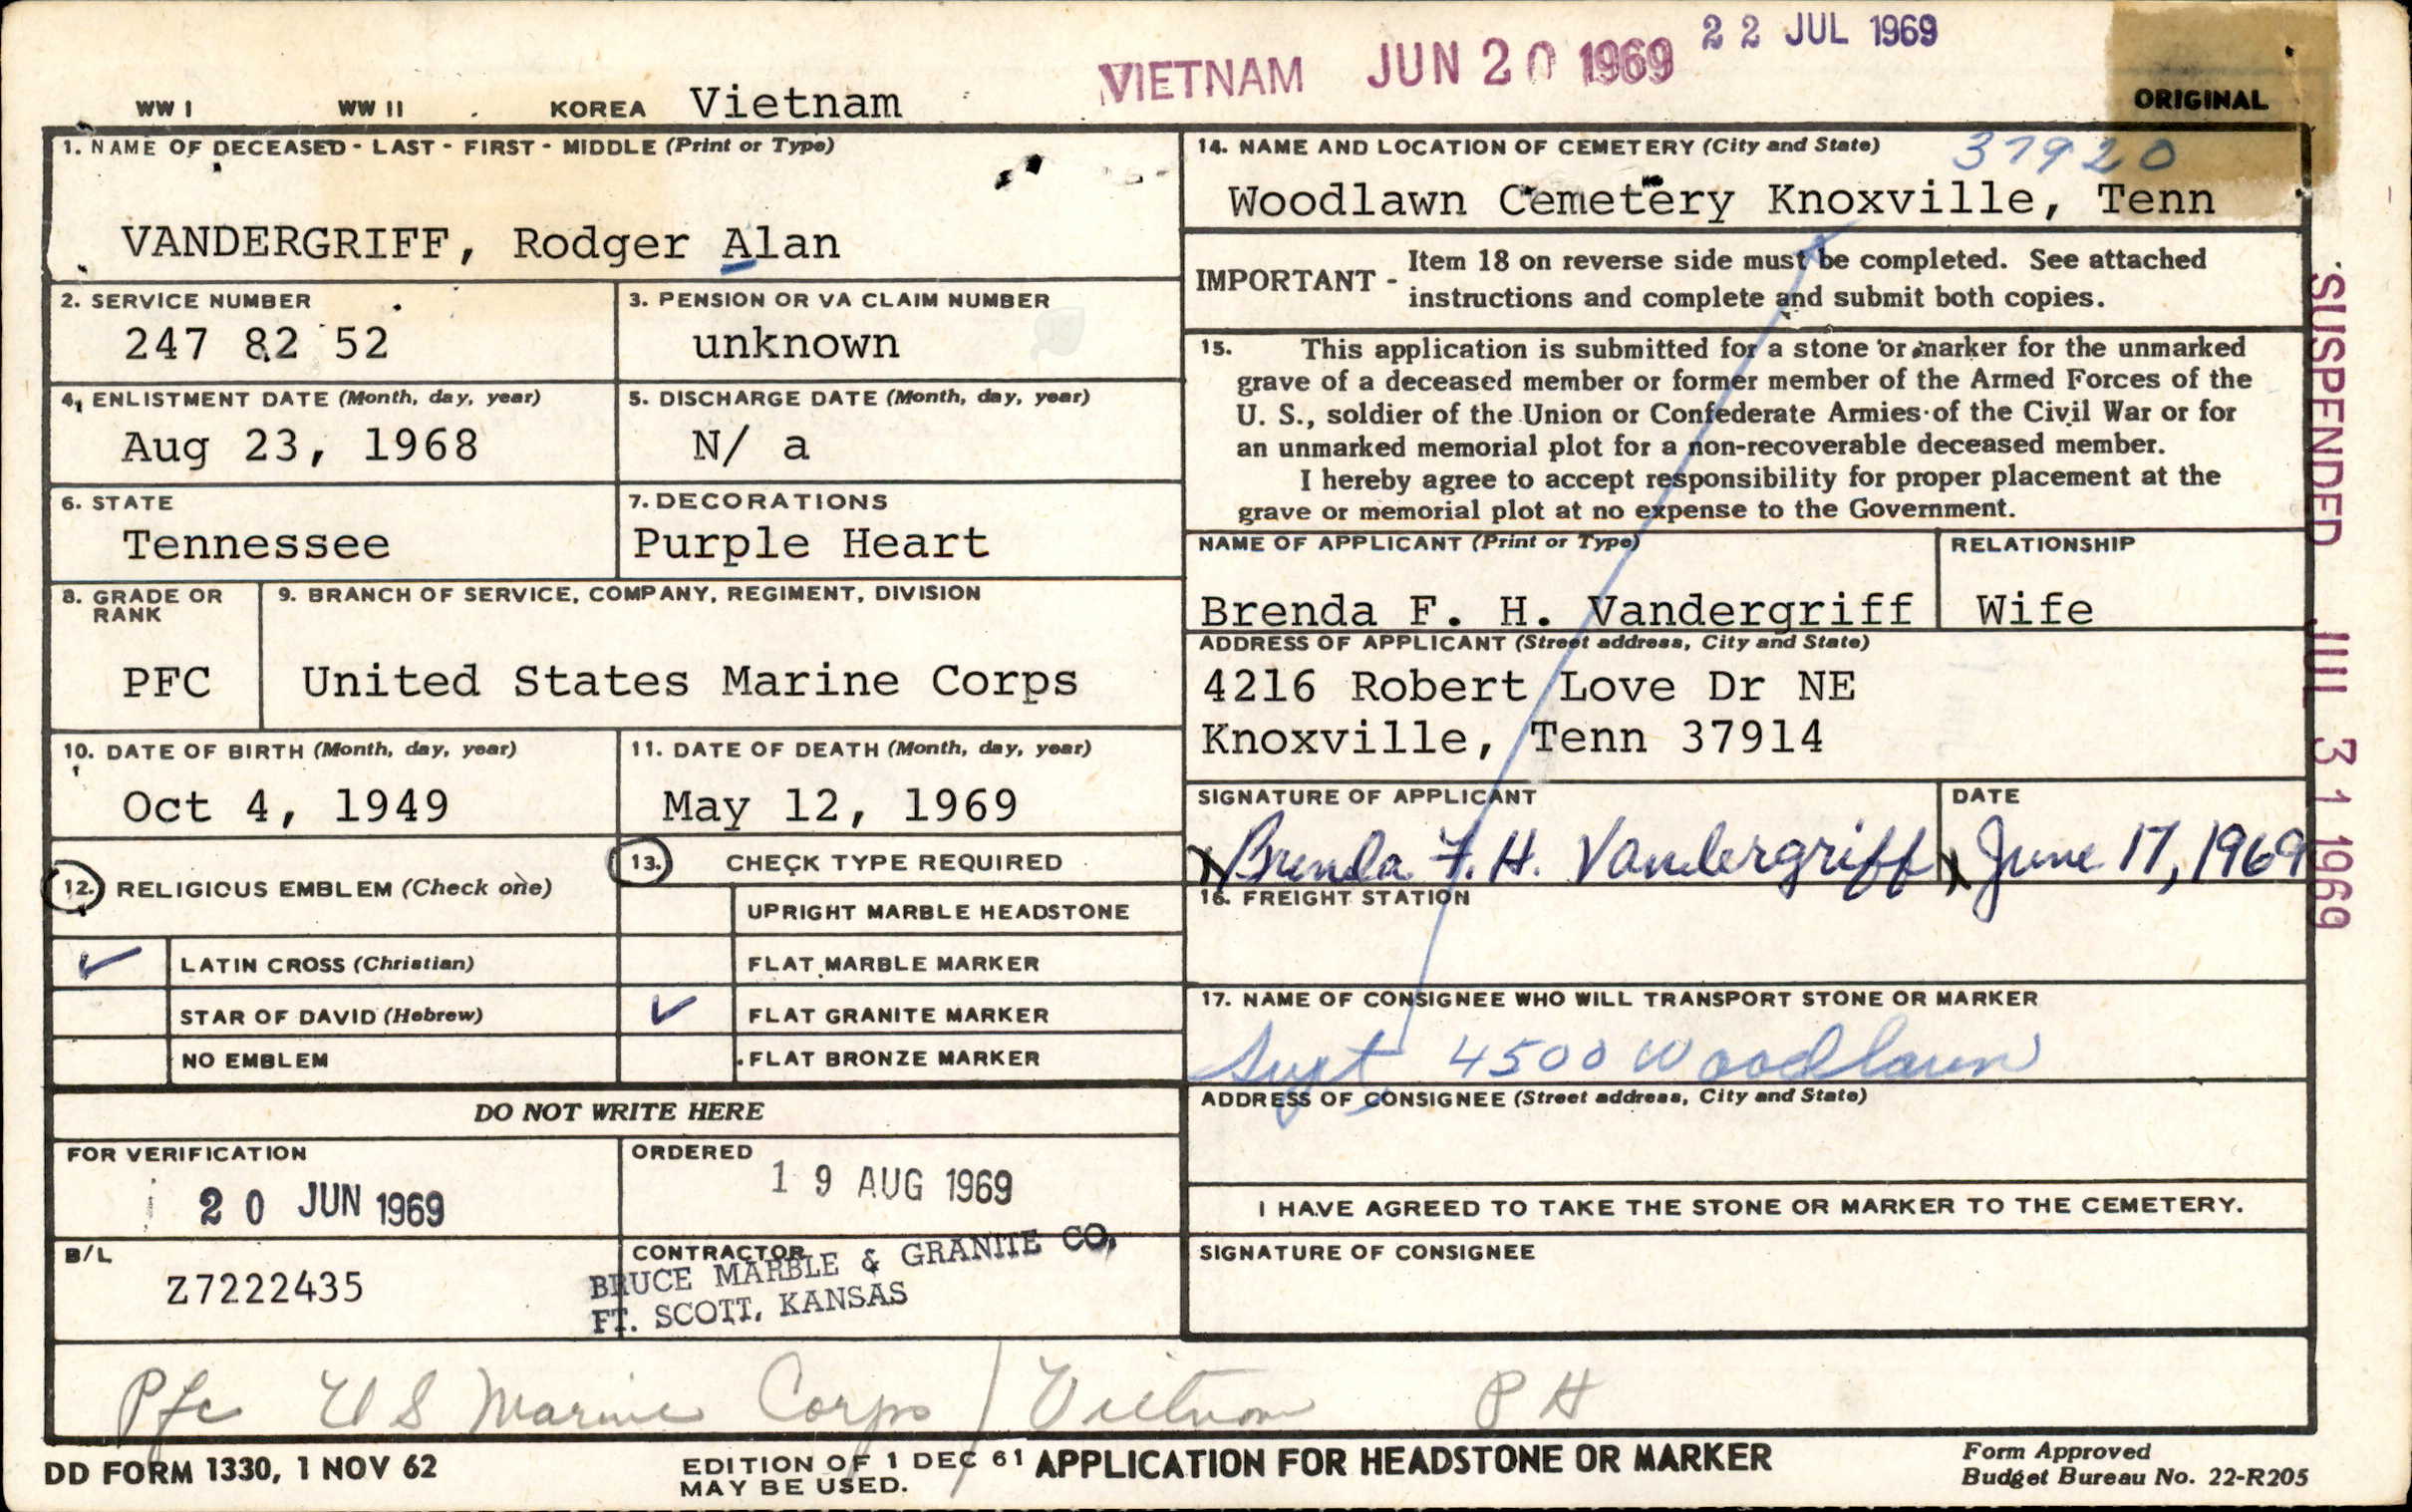 VIETNAM JUN 20 1969 22 JUL 1969
WW I WW II KOREA Vietnam ORIGINAL
1. NAME OF DECEASED - LAST - FIRST - MIDDLE (Print or Type)
VANDERGRIFF, Rodger Alan
2. SERVICE NUMBER
247 82 52
3. PENSION OR VA CLAIM NUMBER
unknown
4. ENLISTMENT DATE (Month, day, year)
Aug 23, 1968
5. DISCHARGE DATE (Month, day, year)
N/ a
6. STATE
Tennessee
7. DECORATIONS
Purple Heart
8. GRADE OR
RANK
PFC
9. BRANCH OF SERVICE, COMPANY, REGIMENT, DIVISION
United States Marine Corps
10. DATE OF BIRTH (Month, day, year)
Oct 4, 1949
11. DATE OF DEATH (Month, day, year)
May 12, 1969
12. RELIGIOUS EMBLEM (Check one)
LATIN CROSS (Christian)
STAR OF DAVID (Hebrew)
NO EMBLEM
13. CHECK TYPE REQUIRED
UPRIGHT MARBLE HEADSTONE
FLAT MARBLE MARKER
FLAT GRANITE MARKER
FLAT BRONZE MARKER
DO NOT WRITE HERE
FOR VERIFICATION
20 JUN 1969
ORDERED
19 AUG 1969
B/L
Z7222435
CONTRACTOR
BRUCE MARBLE & GRANITE CO,
FT. SCOTT, KANSAS
14. NAME AND LOCATION OF CEMETERY (City and State) 37920
Woodlawn Cemetery Knoxville, Tenn
IMPORTANT - Item 18 on reverse side must be completed. See attached
instructions and complete and submit both copies.
15. This application is submitted for a stone or marker for the unmarked
grave of a deceased member or former member of the Armed Forces of the
U. S., soldier of the Union or Confederate Armies of the Civil War or for
an unmarked memorial plot for a non-recoverable deceased member.
I hereby agree to accept responsibility for proper placement at the
grave or memorial plot at no expense to the Government.
NAME OF APPLICANT (Print or Type)
Brenda F. H. Vandergriff
RELATIONSHIP
Wife
ADDRESS OF APPLICANT (Street address, City and State)
4216 Robert Love Dr NE
Knoxville, Tenn 37914
SIGNATURE OF APPLICANT
Brenda F. H. Vandergriff
DATE
June 17, 1969
16. FREIGHT STATION
17. NAME OF CONSIGNEE WHO WILL TRANSPORT STONE OR MARKER
Supt 4500 Woodlawn
ADDRESS OF CONSIGNEE (Street address, City and State)
I HAVE AGREED TO TAKE THE STONE OR MARKER TO THE CEMETERY.
SIGNATURE OF CONSIGNEE
SUSPENDED JUL 31 1969
Pfc US Marine Corps / Vietnam PH
DD FORM 1330, 1 NOV 62
EDITION OF 1 DEC 61
MAY BE USED.
APPLICATION FOR HEADSTONE OR MARKER
Form Approved
Budget Bureau No. 22-R205